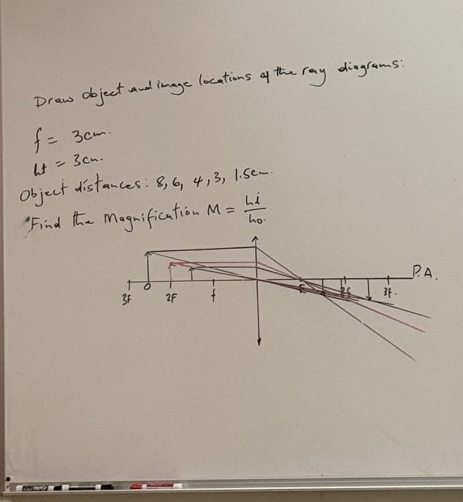 Draw object and image locations of the ray diagrams:
f = 3cm.
ht = 3cm.
Object distances: 8, 6, 4, 3, 1.5cm.
Find the Magnification M = hi/ho.
P.A.
3F O 2F f F 2F 3F.